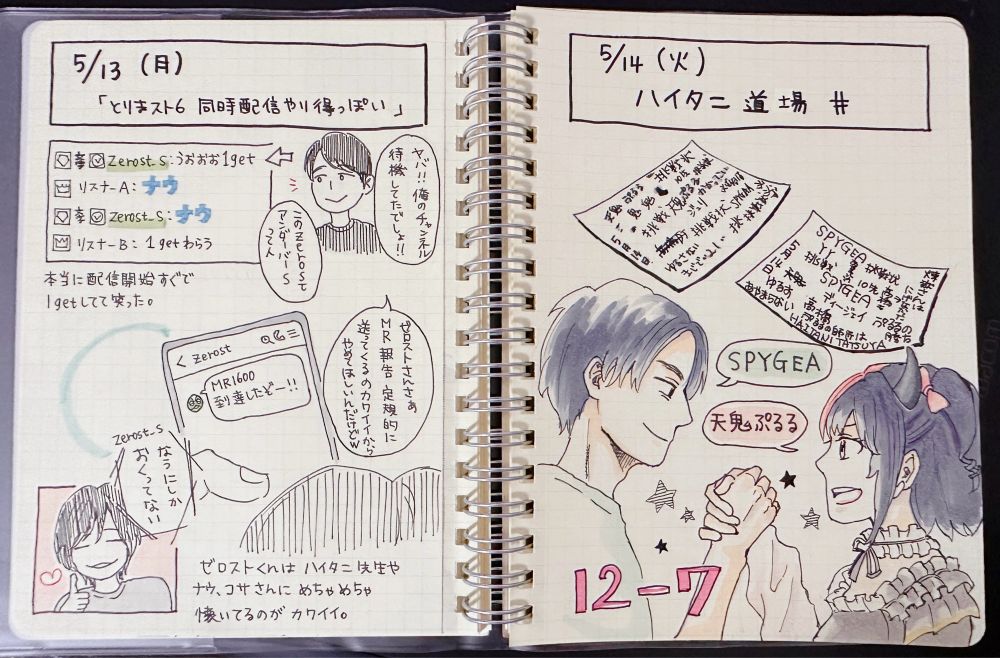 5/13 (月)
「とりまスト6 同時配信やり得っぽい」
zerost_s:うおおお1get
リスナーA:ナウ
zerost_s:ナウ
リスナーB:1getわらう
本当に配信開始すぐで
1getしてて笑った。
ヤバ!!俺のチャンネル
待機してたでしょ!!
このzerostて
アンダーバーS
ってん
ゼロストさんさぁ
MR報告定規的に
送ってくるのカワイイから
やめてほしいんだけどw
< zerost
MR1600
到達したぞー!!
zerost_s
なうにしか
おくってない
ゼロストくんは ハイタニ先生や
ナウ、コサさんに めちゃめちゃ
懐いてるのが カワイイ。
5/14 (火)
ハイタニ 道場 #
5月14日
SPYGEA
挑戦状
10先
SPYGEA
ディージェイ
高橋
ゆるす
あやまらない
ぷるるの
ぷるるの師匠は
HAITANI TATSUYA
SPYGEA
天鬼ぷるる
12-7